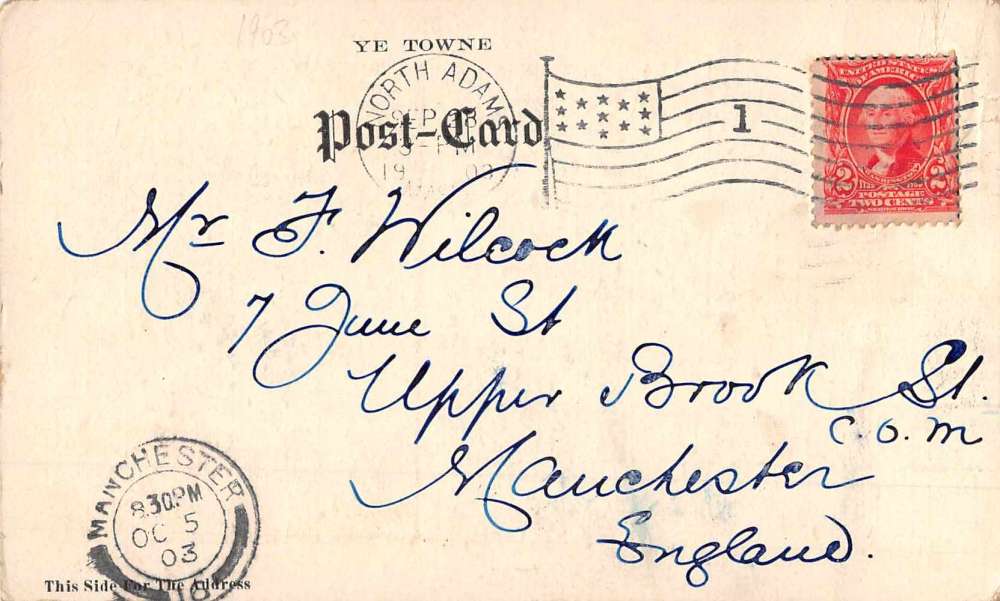 1903
YE TOWNE
Post-Card
NORTH ADAMS
SEP 28
PM
1903
MASS
1
UNITED STATES
OF AMERICA
2 2
POSTAGE
TWO CENTS
Mr F. Wilcock
7 June St
Upper Brook St.
C.O.M
Manchester
England.
MANCHESTER
8.30PM
OC 5
03
This Side For The Address